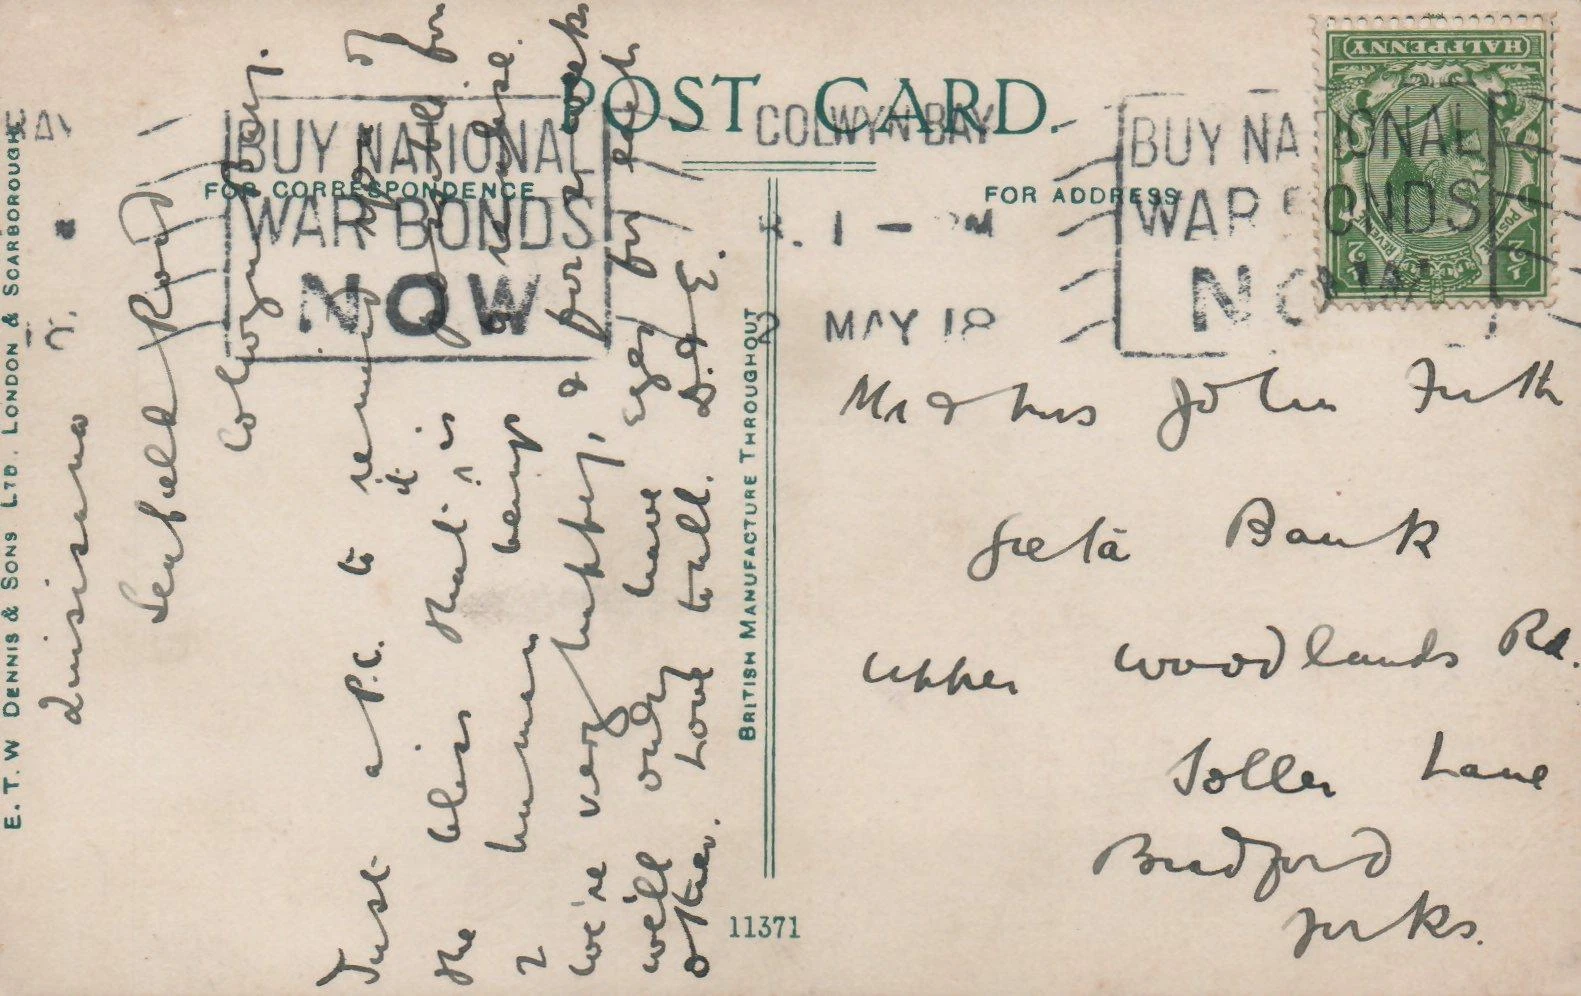 POST CARD.
FOR CORRESPONDENCE
FOR ADDRESS
COLWYN BAY
1 - PM
MAY 18
BUY NATIONAL
WAR BONDS
NOW
BUY NATIONAL
WAR BONDS
NOW
HALFPENNY
POSTAGE
REVENUE
½
½
E. T. W DENNIS & SONS LTD. LONDON & SCARBOROUGH
BRITISH MANUFACTURE THROUGHOUT
11371
Quisisana
Seafield Road
Colwyn Bay.
Just a P.C. to remind you of
the bliss that it is possible for
2 human beings to realise.
We're very happy, & for weeks
we'll only have eyes for each
other. Love to all. D. & E.
Mr & Mrs John Firth
Greta Bank
Upper Woodlands Rd.
Toller Lane
Bradford
Yorks.